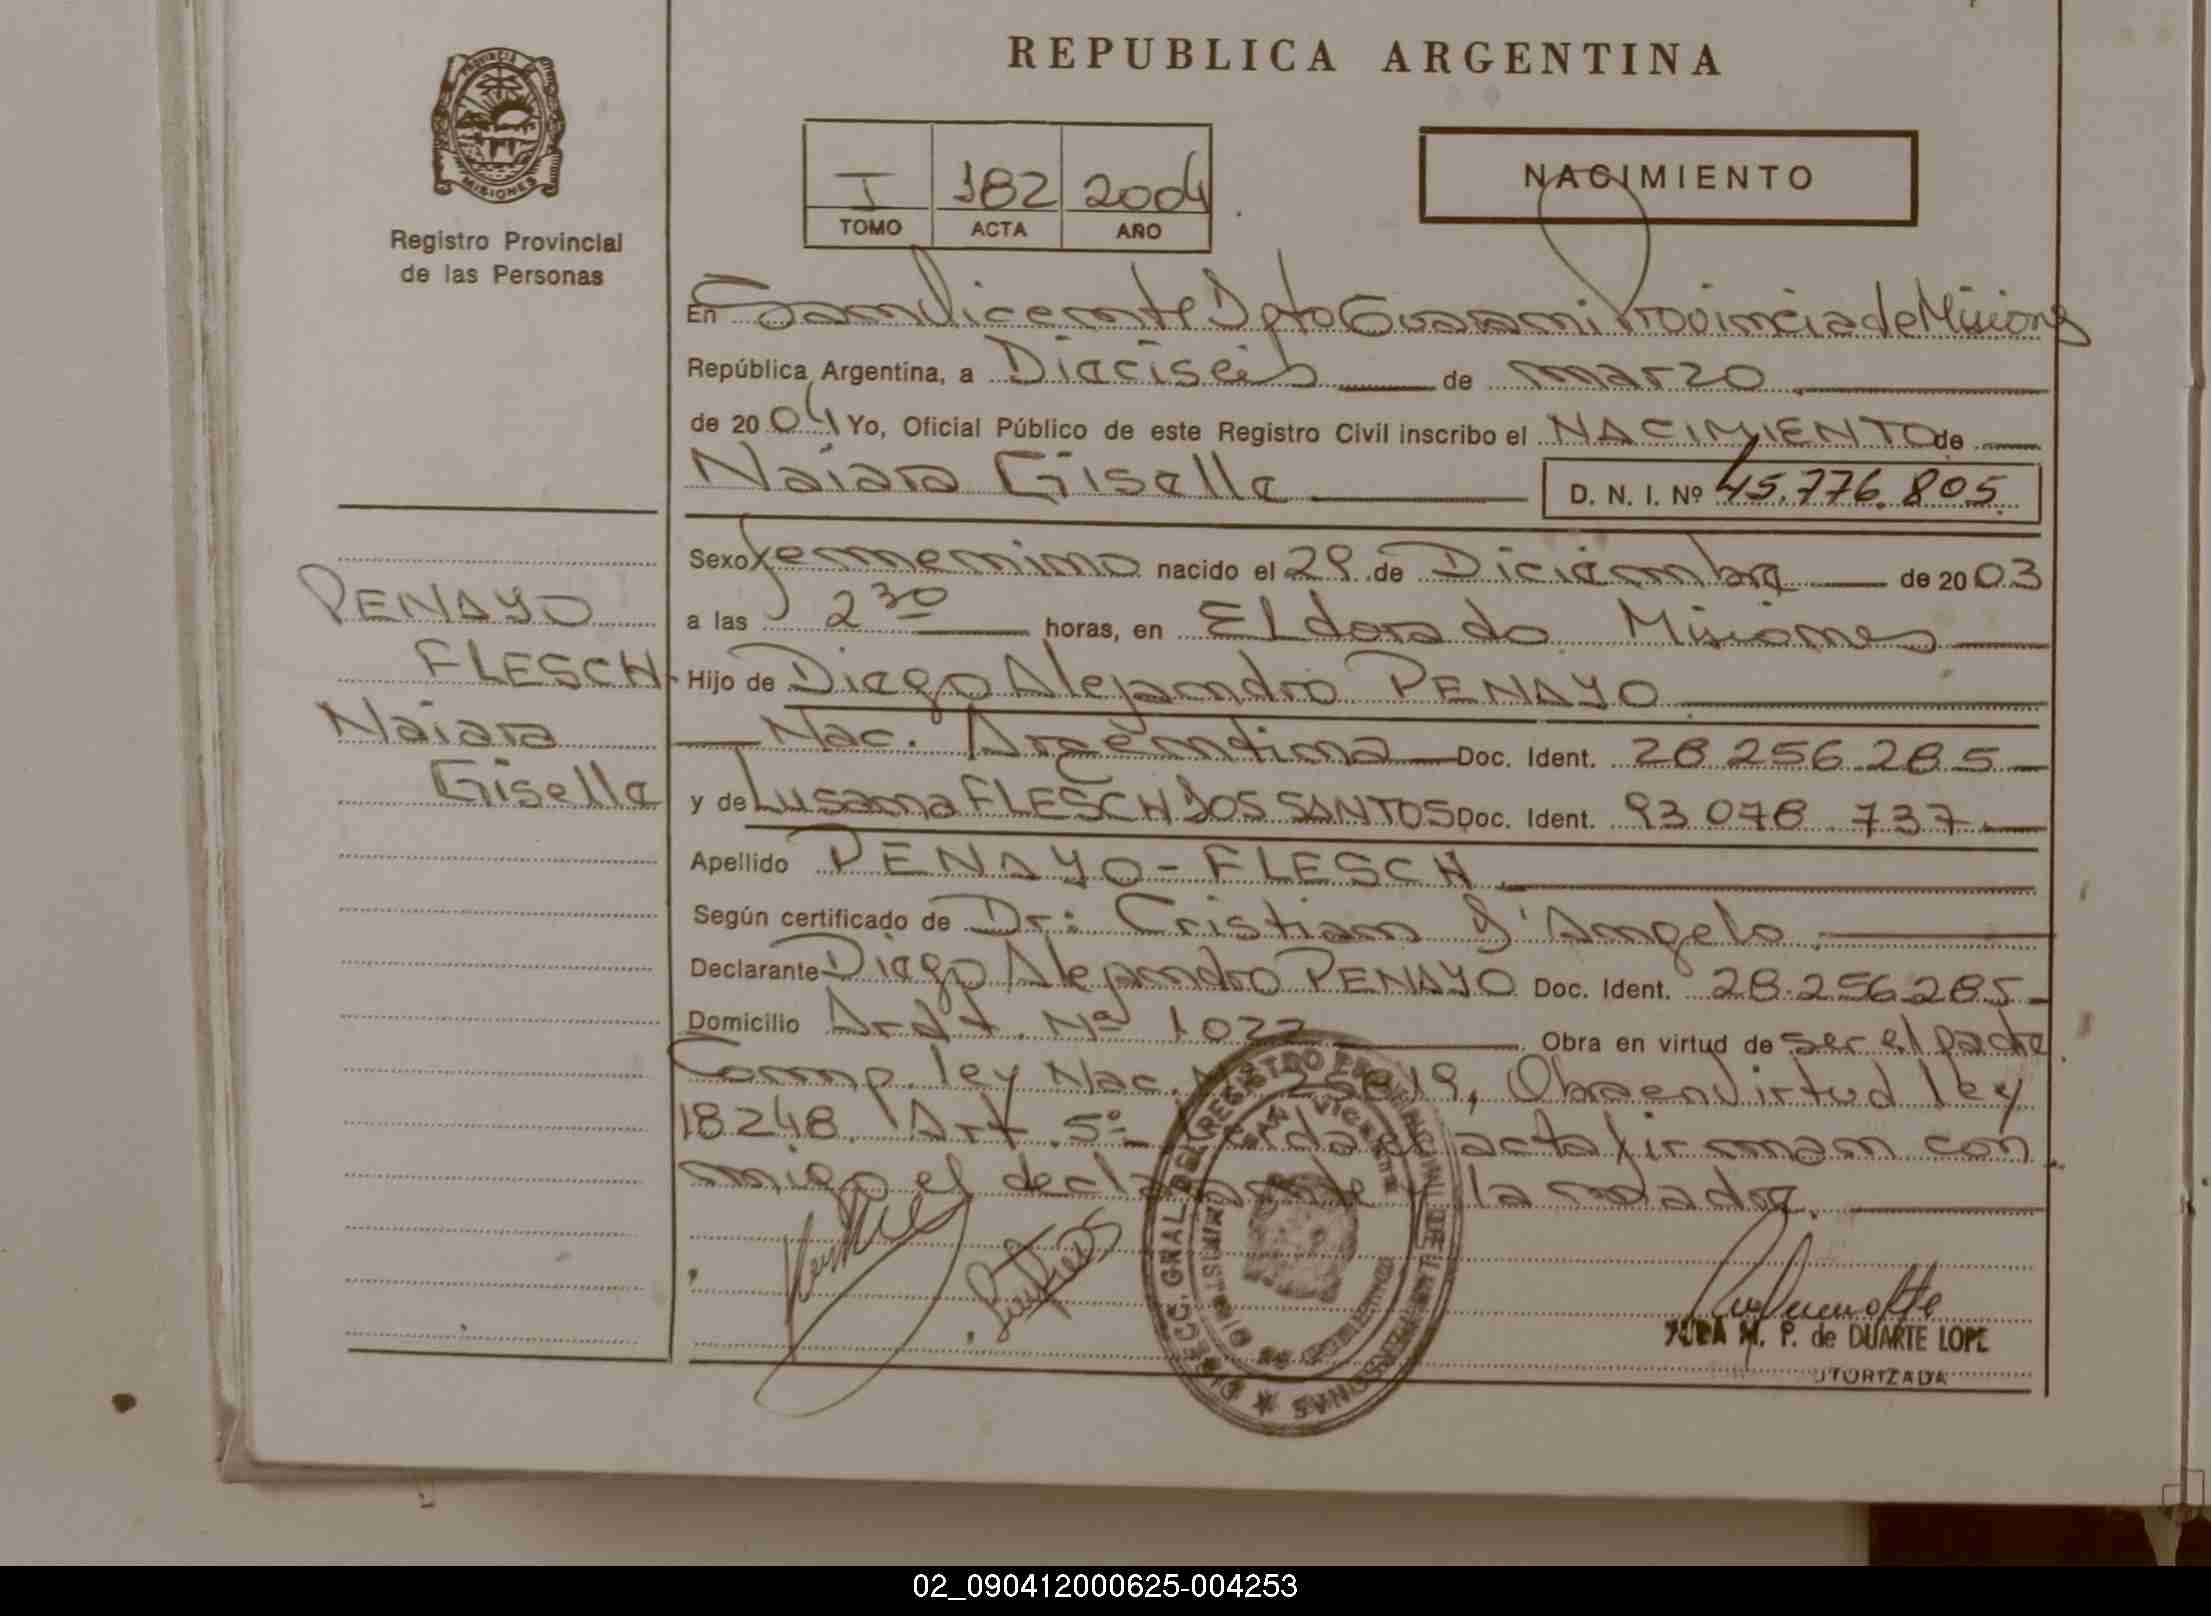 REPUBLICA ARGENTINA
PROVINCIA DE
MISIONES
Registro Provincial
de las Personas
I 182 2004
TOMO ACTA AÑO
NACIMIENTO
En San Vicente Dpto Guarani Provincia de Misiones
República Argentina, a Dieciseis de marzo
de 2004 Yo, Oficial Público de este Registro Civil inscribo el NACIMIENTO de
Naiara Giselle
D. N. I. Nº 45.776.805
Sexo femenino nacido el 29 de Diciembre de 2003
a las 2 30 horas, en Eldorado Misiones
PENAYO
FLESCH
Naiara
Giselle
Hijo de Diego Alejandro PENAYO
Nac. Argentina Doc. Ident. 28 256 285
y de Lusana FLESCH DOS SANTOS Doc. Ident. 93 078 737
Apellido PENAYO - FLESCH
Según certificado de Dr: Cristian D'Angelo
Declarante Diego Alejandro PENAYO Doc. Ident. 28.256.285
Domicilio Nº 1022 Obra en virtud de ser el padre
Comp. ley Nac. Nº 25819, Obra en Virtud ley
18248. Art. 5º Leida el acta firman con
migo el declarante y la madre.
DIRECC. GRAL. DEL REGISTRO PROVINCIAL DE LAS PERSONAS
SAN VICENTE
MISIONES
M. P. de DUARTE LOPE
UTORIZADA
02_090412000625-004253